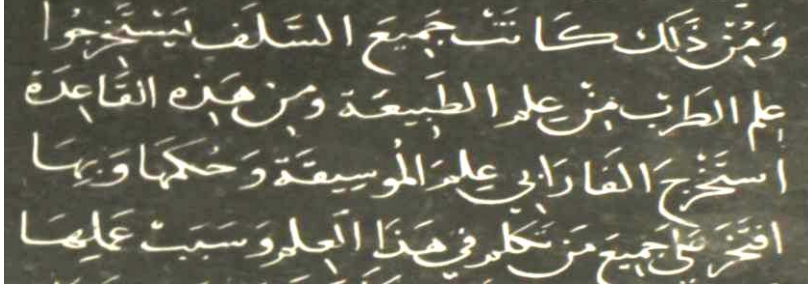 وَمِنْ ذَلِكَ كَانَتْ جَمِيعَ السَّلَفِ يَسْتَخْرِجُوا
عِلم الطَرَبْ مِنْ عِلمِ الطَّبِيعَة وَمِن هَذِه القَاعِدَة
اسْتَخْرَجَ الفَارَابِي عِلمَ المُوسِيقَة وَحُكمَهَا وَبِهَا
افتَخَرَ عَلَى جَمِيعَ مَن تَكَلمَ فِي هَذَا العِلمِ وَسَبَبْ عَمَلِهَا